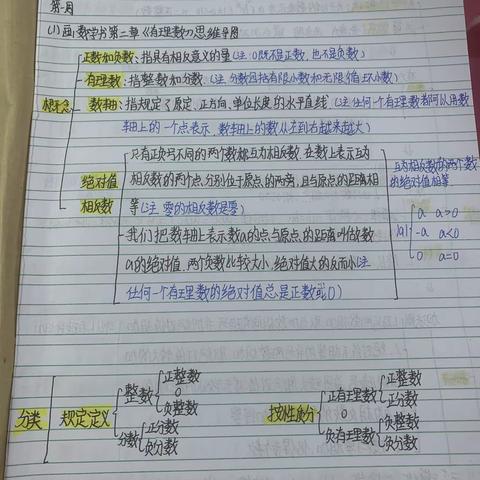 第一周
(1)画数学书第二章《有理数》思维导图
概念
正数和负数:指具有相反意义的量(注:0既不是正数,也不是负数)
有理数:指整数和分数(注:分数包括有限小数和无限循环小数)
数轴:指规定了原点、正方向、单位长度的水平直线(注:任何一个有理数都可以用数
轴上的一个点表示,数轴上的数从左到右越来越大)
绝对值
相反数
只有正负号不同的两个数都互为相反数,在数上表示互为
相反数的两个点,分别位于原点的两旁,且与原点的距离相
等(注:零的相反数是零)
我们把数轴上表示数a的点与原点的距离叫做数
a的绝对值,两个负数比较大小,绝对值大的反而小(注
任何一个有理数的绝对值总是正数或0)
互为相反数的两个数
的绝对值相等
|a|
a a>0
-a a<0
0 a=0
分类
规定定义
整数
正整数
0
负整数
分数
正分数
负分数
按性质分
正有理数
正整数
正分数
0
负有理数
负整数
负分数